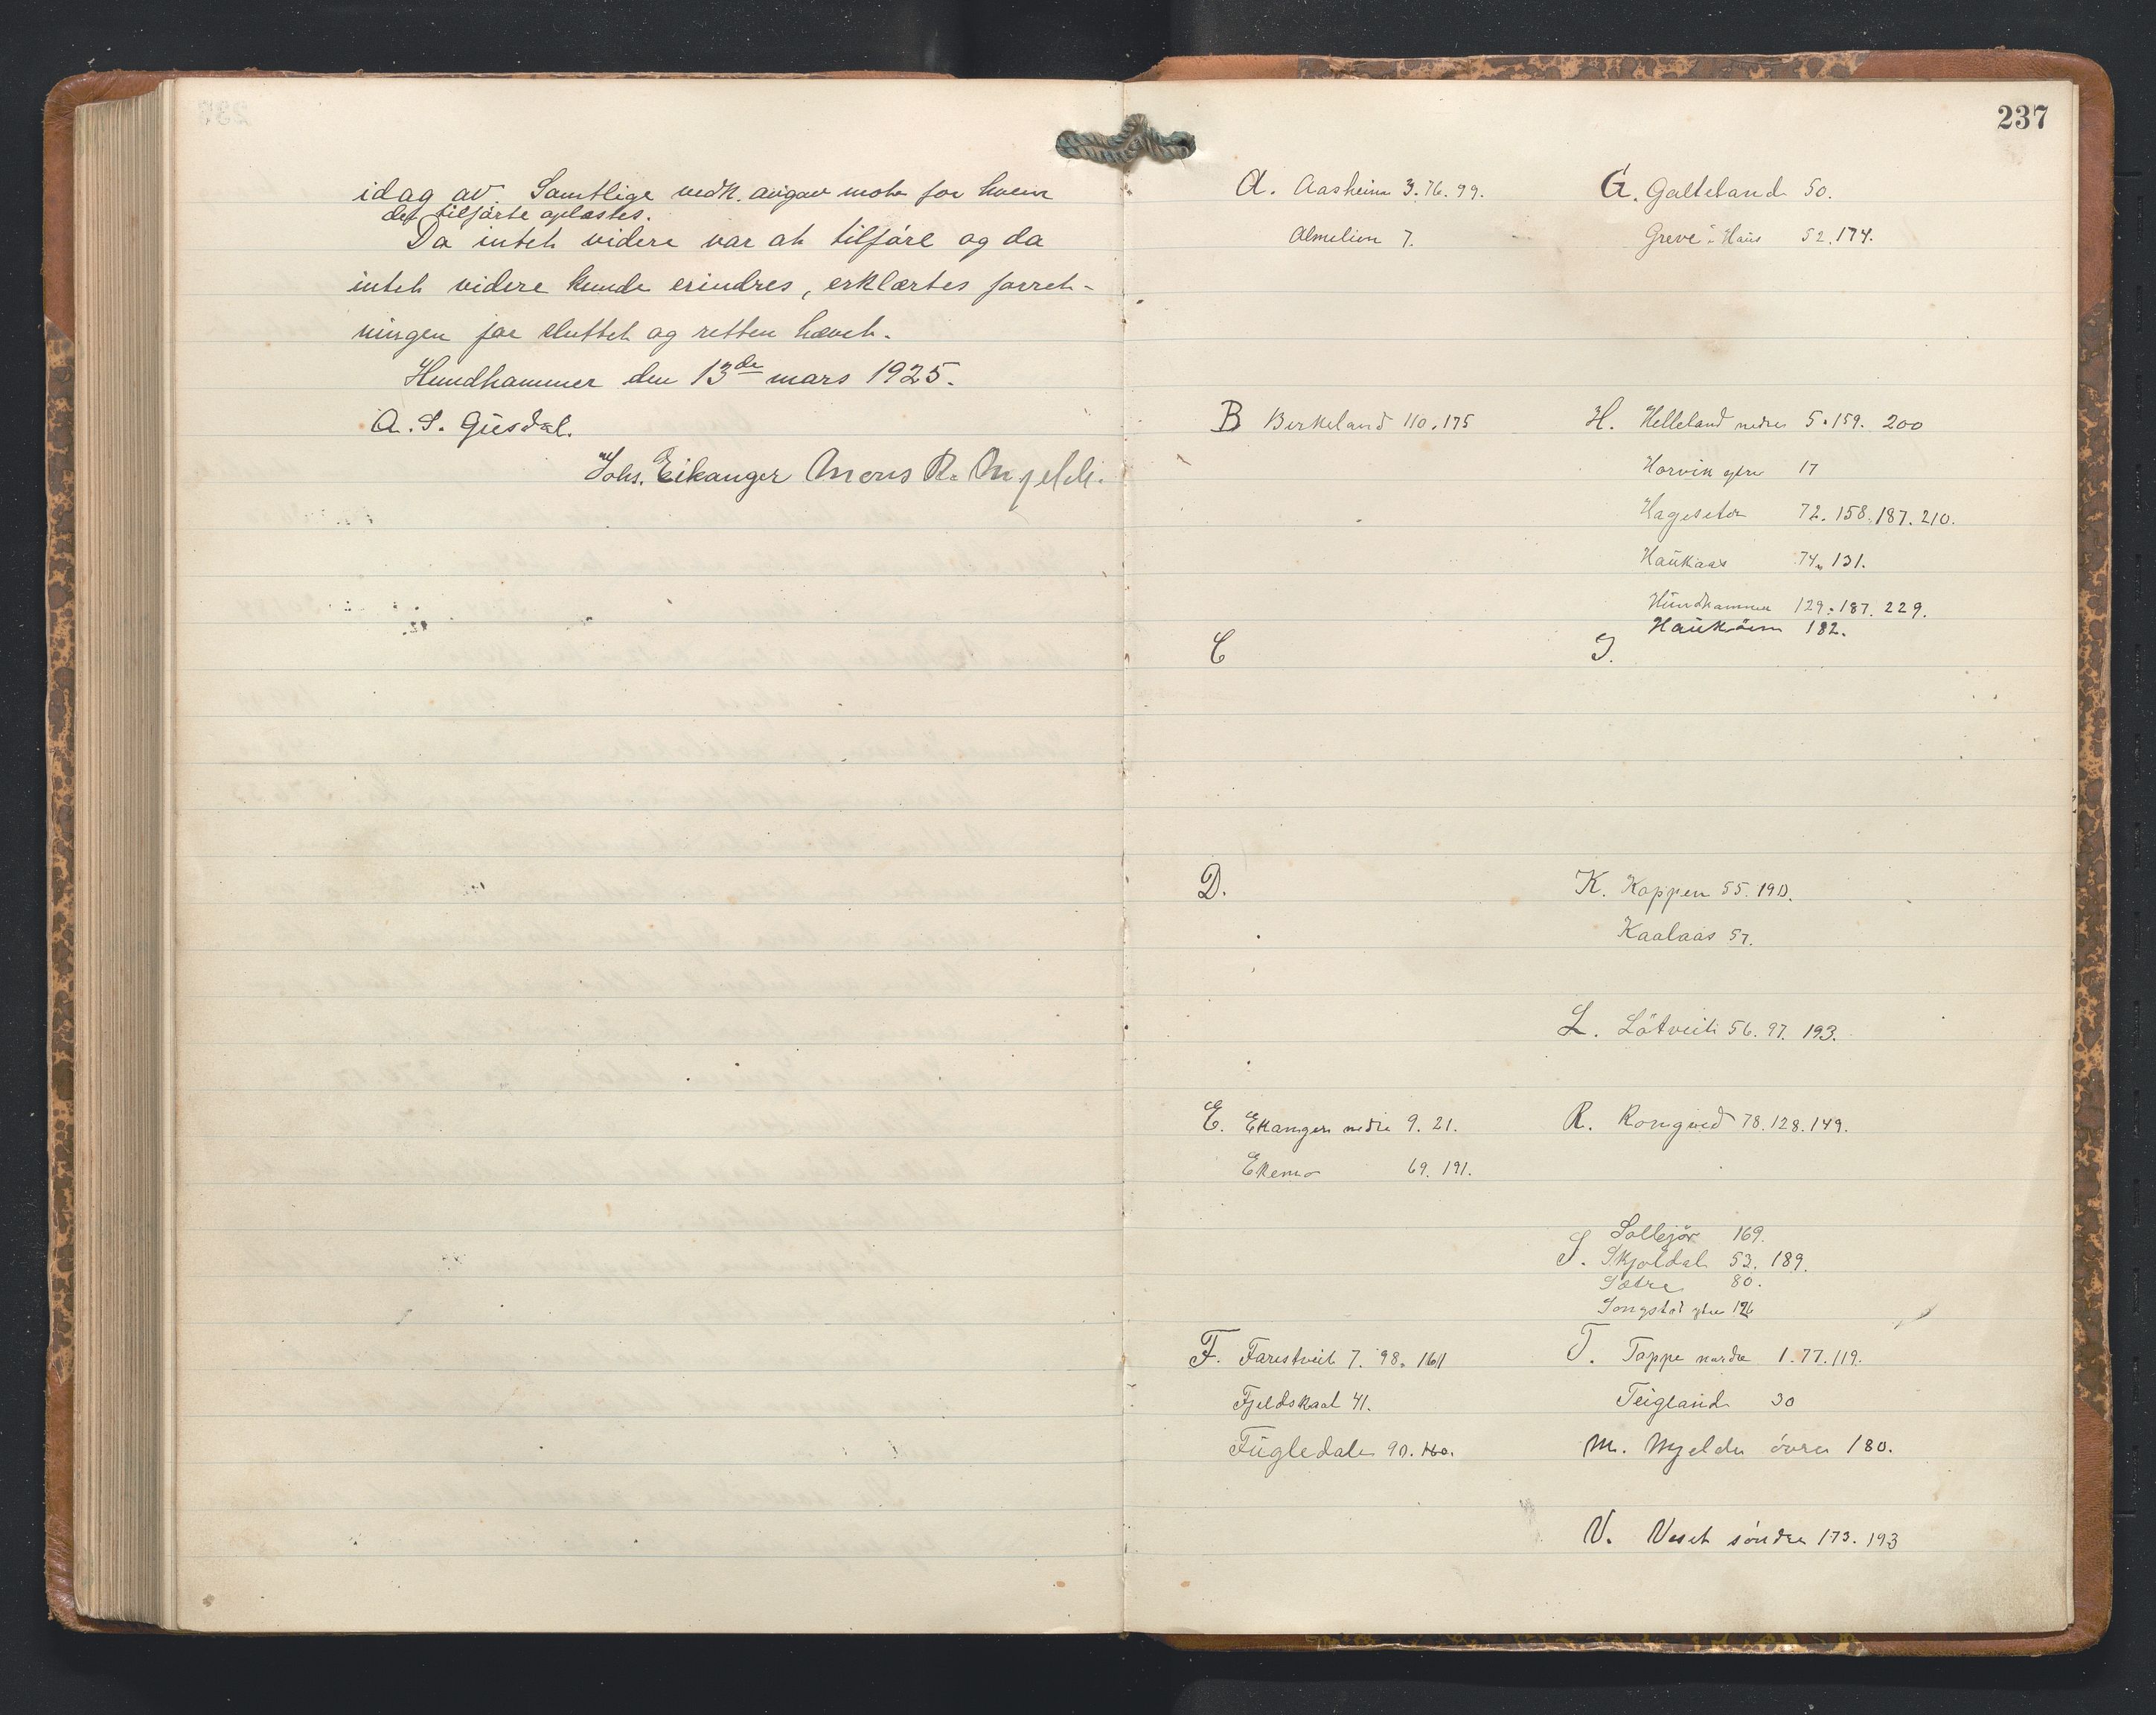 idag av. Samtlige vedk. avgav møte for hvem
det tilførte oplæstes.
Da intet videre var at tilføre og da
intet videre kunde erindres, erklærtes forret-
ningen for sluttet og retten hævet.
Hundhammer den 13de mars 1925.
A. S. Gusdal.
Johs. Eikanger Mons R. Mjelde.
237
A. Aasheim 3. 76. 99.
Almelien 7.
B Birkeland 110. 175
C
D.
E. Ekanger nedre 9. 21.
Ekemo 69. 191.
F. Farestveit 7. 98. 161
Fjeldskaal 41.
Fugledale 90. 160.
G. Galteland 50.
Greve - Haus 52. 174.
H. Helleland nedre 5. 159. 200
Horvik ytre 17
Hageseter 72. 158. 187. 210.
Haukaas 74. 131.
Hundhammer 129. 187. 229.
Haukåsen 182.
I.
K. Koppen 55. 190.
Kaalaas 57.
L. Løtveit 56. 97. 193.
R. Rongved 78. 128. 149.
Sollejør 169.
S. Skjoldal 53. 189.
Sætre 80.
Songstad ytre 126
T. Toppe nordre 1. 77. 119.
Teigland 30
M. Mjelde øvre 180.
V. Veset søndre 173. 193